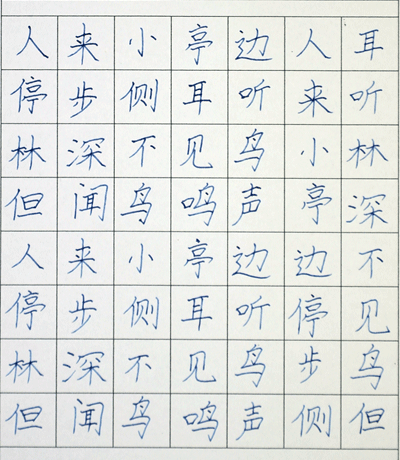 人来小亭边人耳
停步侧耳听来听
林深不见鸟小林
但闻鸟鸣声亭深
人来小亭边边不
停步侧耳听停见
林深不见鸟步鸟
但闻鸟鸣声侧但